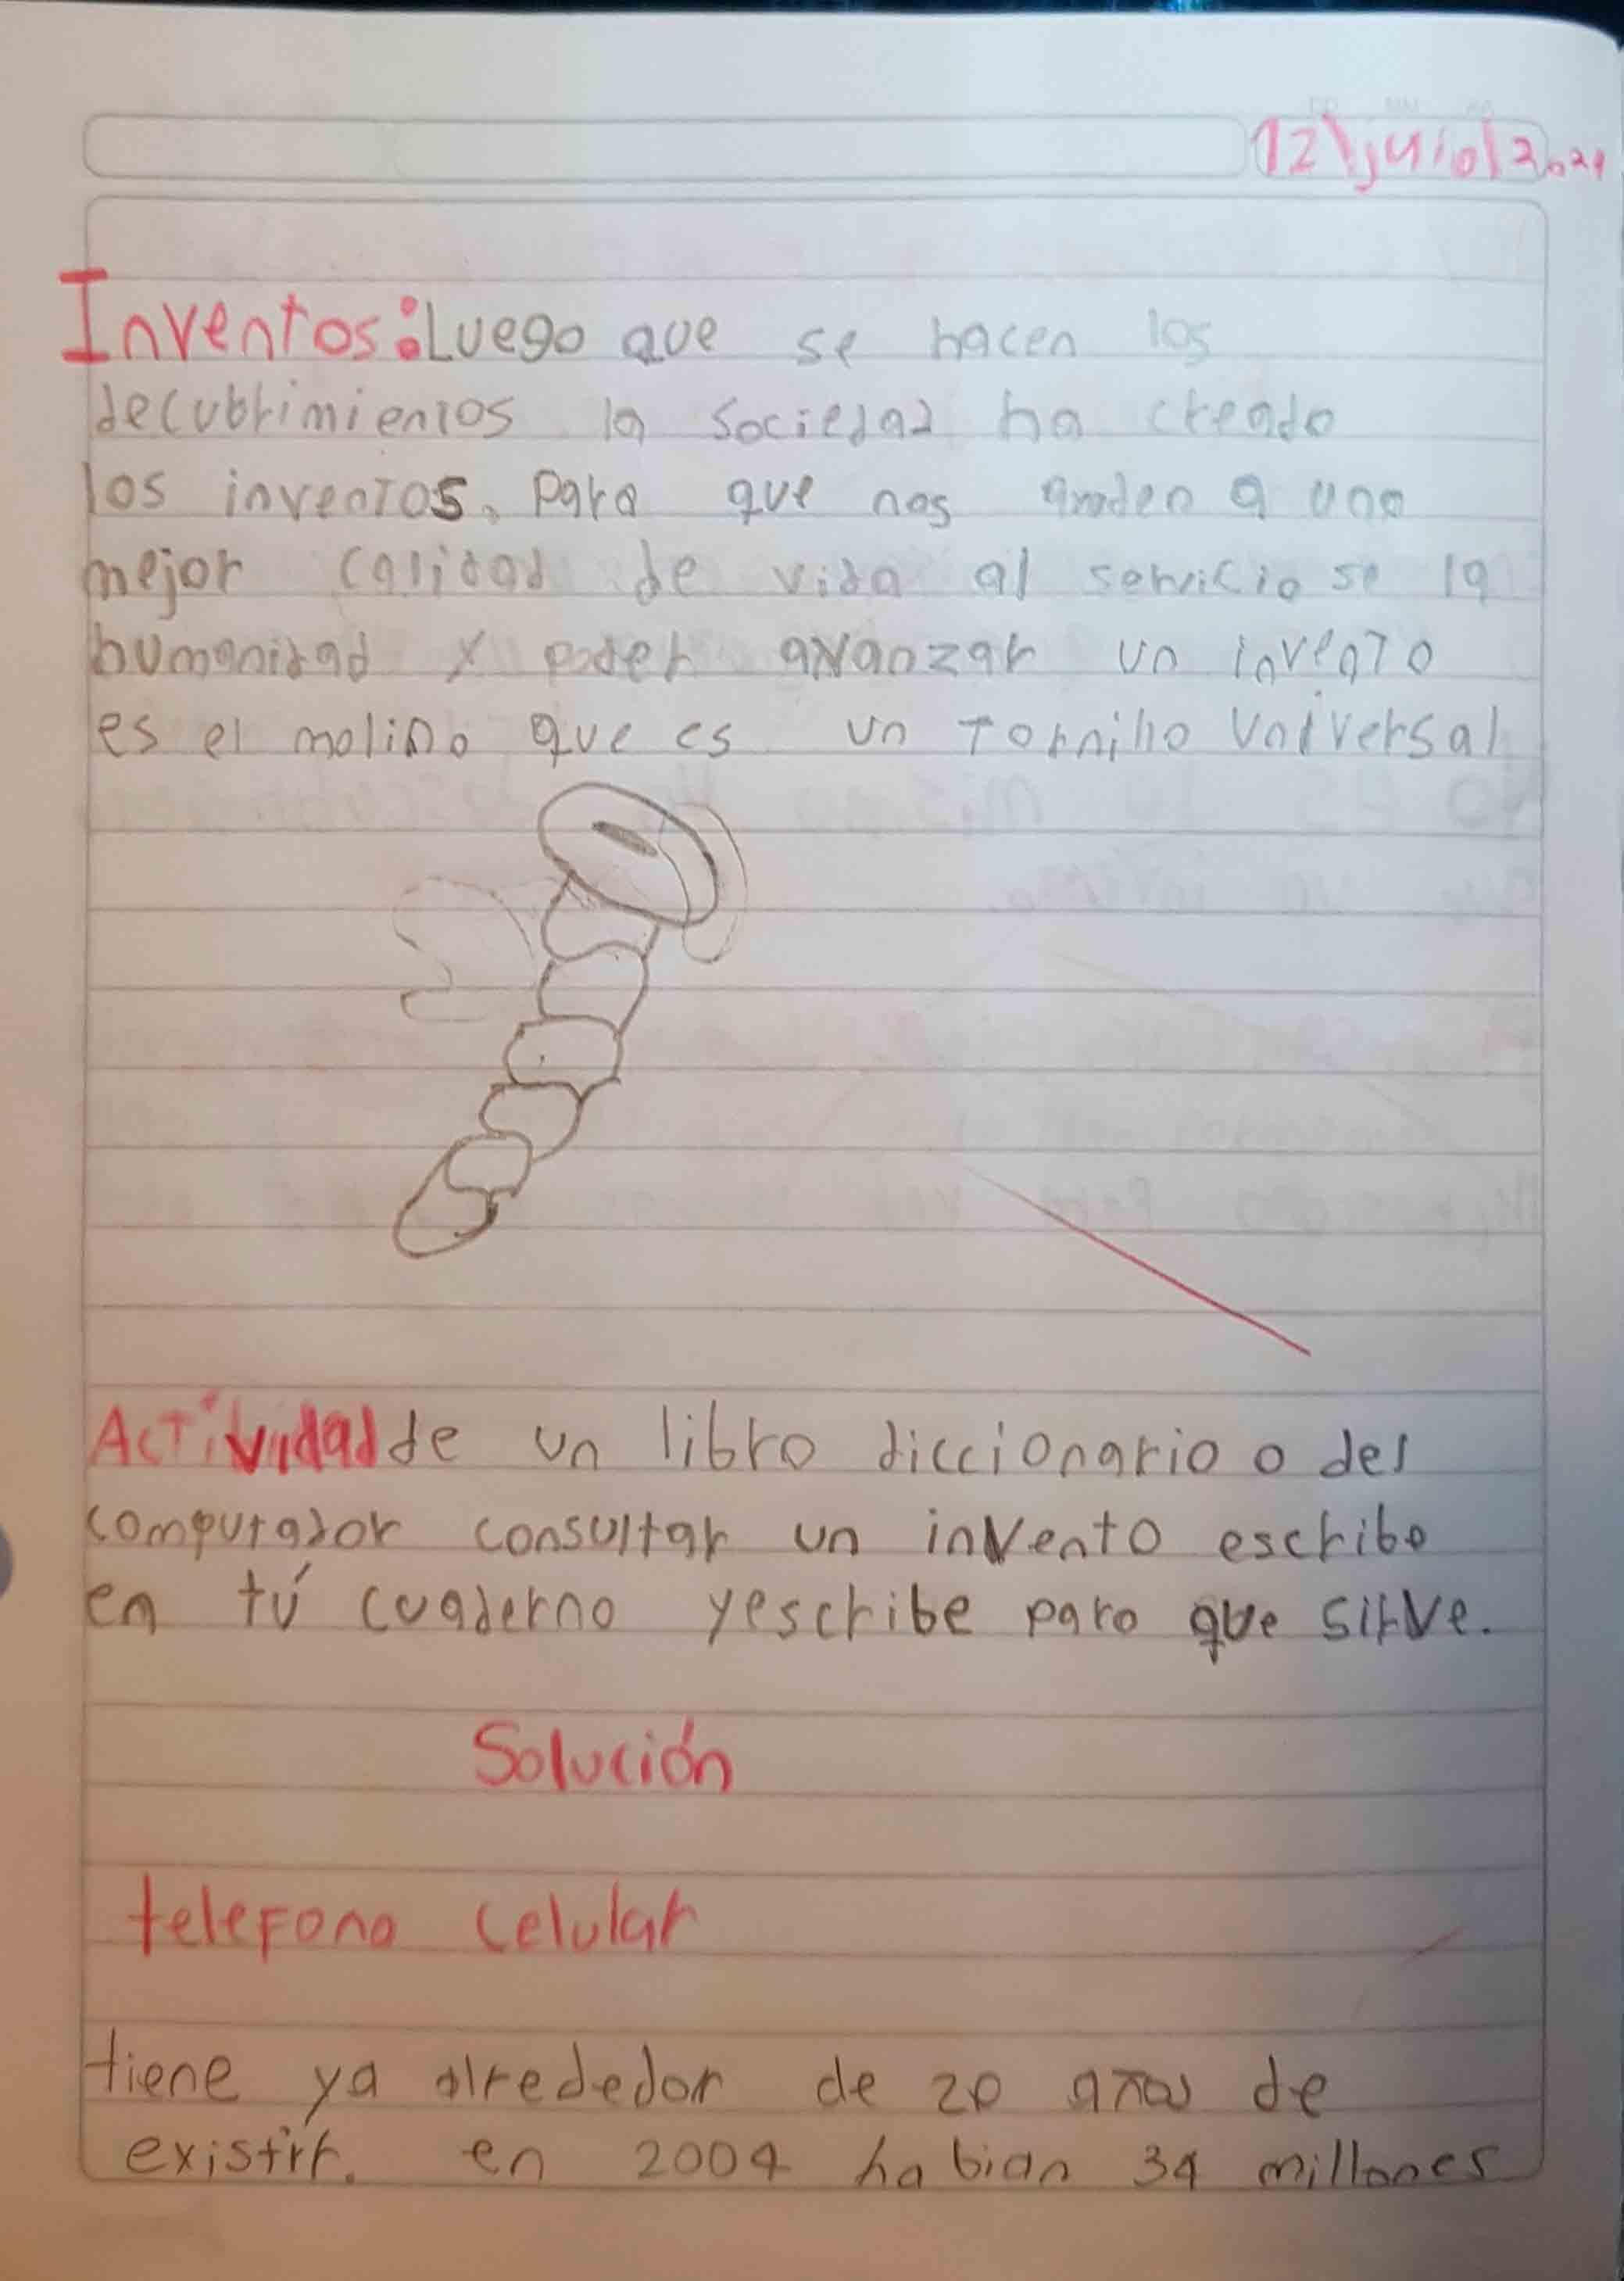 12\juio\2021
Inventos: Luego que se hacen los
decubrimientos la sociedad ha creado
los inventos. para que nos a una
mejor calidad de vida al servicio se la
humanidad y poder avanzar un invento
es el molino que es un tornillo universal
Actividad de un libro diccionario o del
computador consultar un invento escribe
en tú cuaderno y escribe para que sirve.
Solución
telefono celular
tiene ya alrededor de 20 años de
existir. en 2004 habian 34 millones